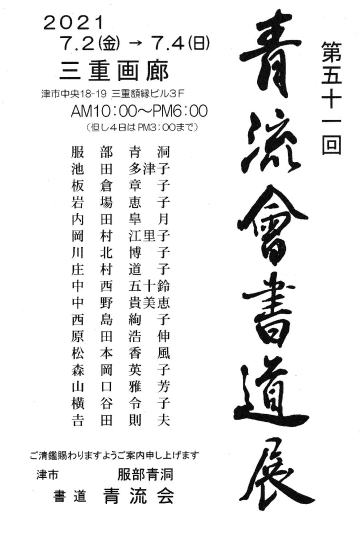 第五十一回
青流會書道展
2021
7.2(金)→7.4(日)
三重画廊
津市中央18-19 三重額縁ビル3F
AM10:00〜PM6:00
(但し4日はPM3:00まで)
服部青洞
池田多津子
板倉章子
岩場恵子
内田皐月
岡村江里子
川北博子
庄村道子
中西五十鈴
中野貴美恵
西島絢子
原田浩伸
松本香風
森岡英子
山口雅芳
横谷令子
𠮷田則夫
ご清鑑賜わりますようご案内申し上げます
津市 服部青洞
書道 青流会